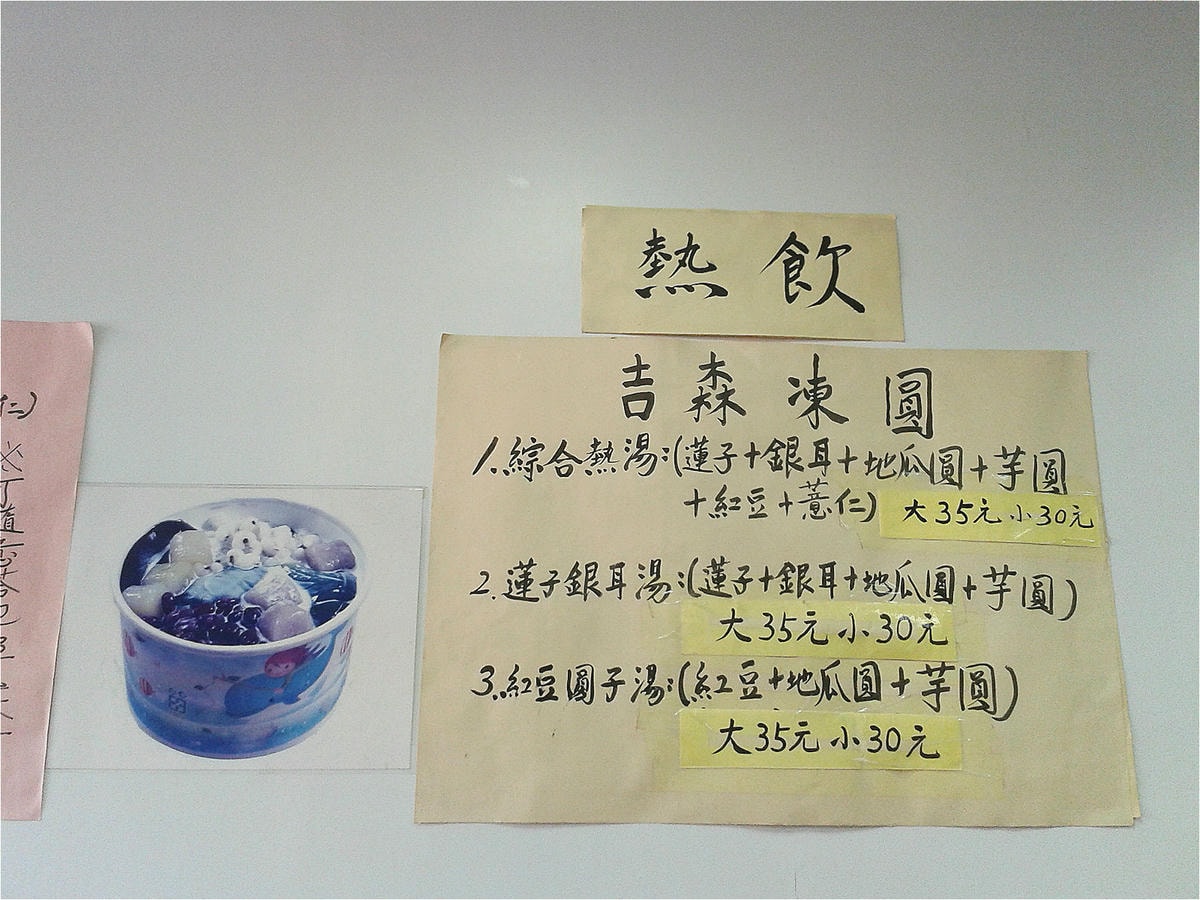 熱飲
吉森凍圓
1.綜合熱湯:(蓮子+銀耳+地瓜圓+芋圓
+紅豆+薏仁)
大35元小30元
2.蓮子銀耳湯:(蓮子+銀耳+地瓜圓+芋圓)
大35元小30元
3.紅豆圓子湯:(紅豆+地瓜圓+芋圓)
大35元小30元
仁)